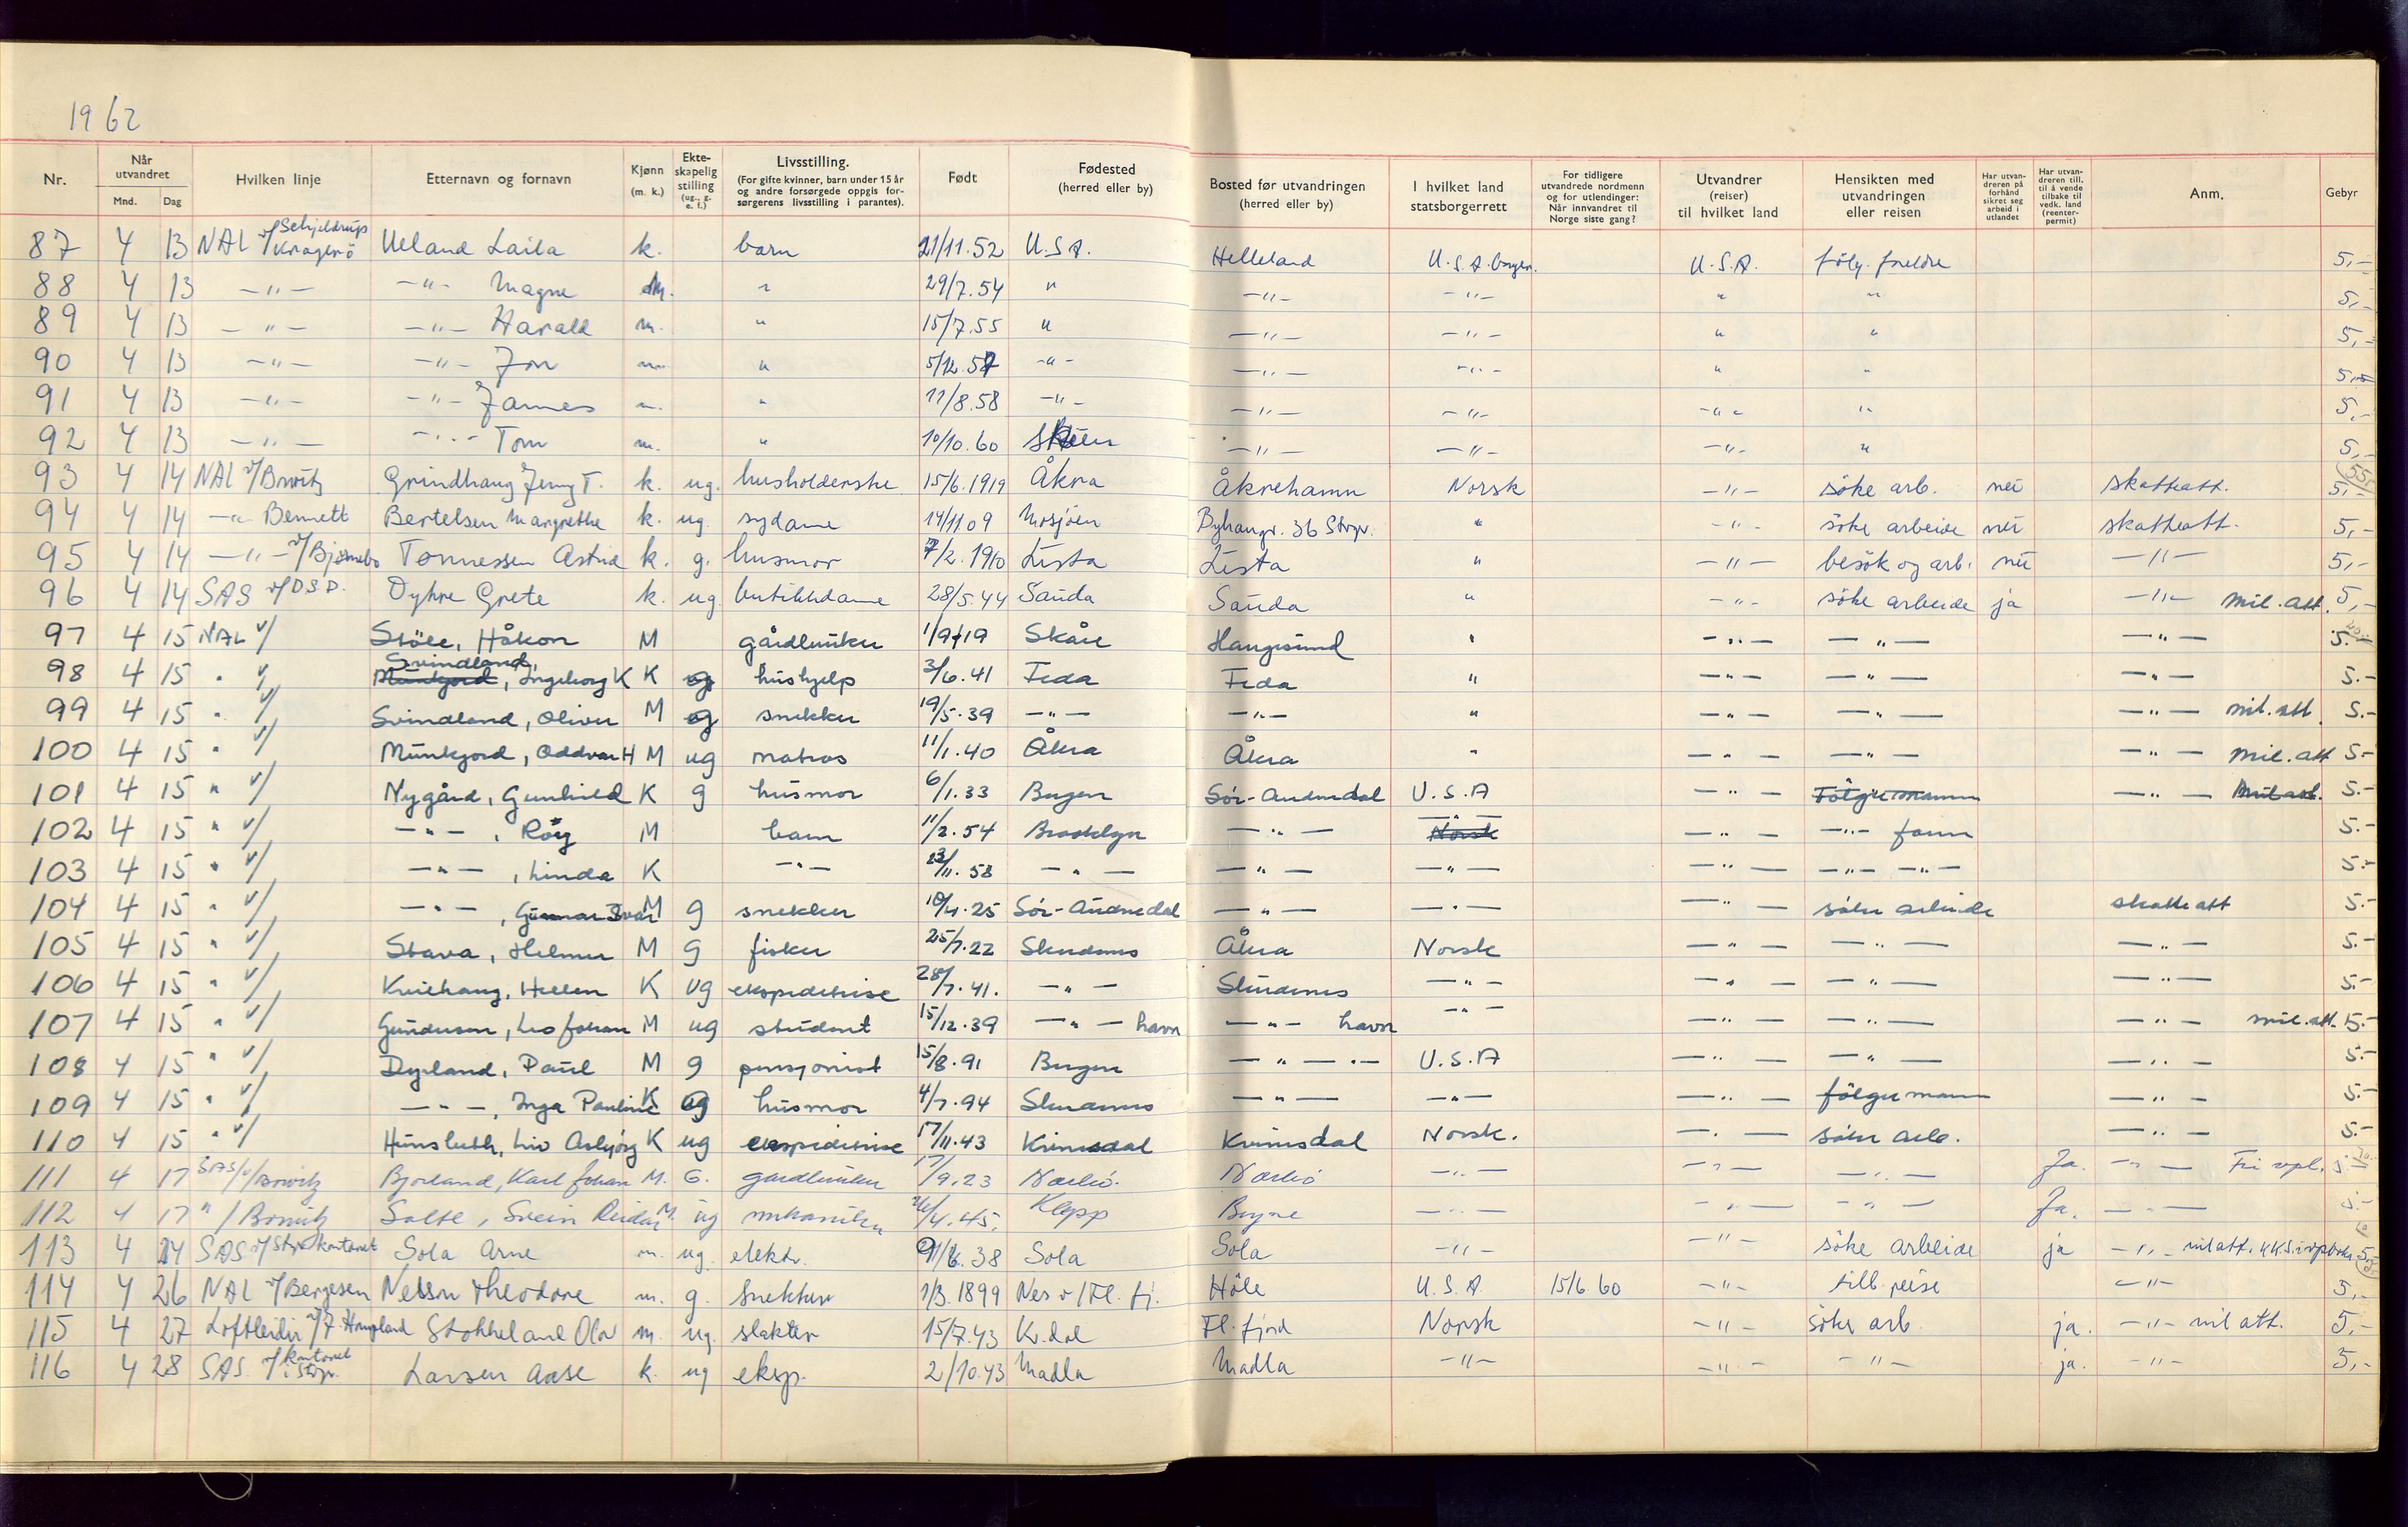 1962
Nr. Når utvandret Mnd. Dag Hvilken linje Etternavn og fornavn Kjønn (m. k.) Ekteskapelig stilling (ug., g. e. f.) Livsstilling. (For gifte kvinner, barn under 15 år og andre forsørgede oppgis forsørgerens livsstilling i parantes). Født Fødested (herred eller by) Bosted før utvandringen (herred eller by) I hvilket land statsborgerrett For tidligere utvandrede nordmenn og for utlendinger: Når innvandret til Norge siste gang? Utvandrer (reiser) til hvilket land Hensikten med utvandringen eller reisen Har utvandreren på forhånd sikret seg arbeid i utlandet Har utvandreren till. til å vende tilbake til vedk. land (reenterpermit) Anm. Gebyr
87 4 13 NAL v/ Schjeldrup Kragerö Ueland Laila k. barn 21/11.52 U.S.A. Helleland U.S.A. borger. U.S.A. følg. foreldre 5,-
88 4 13 -"- -"- Magne m. " 29/7.54 " -"- -"- " " 5,-
89 4 13 -"- -"- Harald m. " 15/7.55 " -"- -"- " " 5,-
90 4 13 -"- -"- Jon m. " 5/12.57 -"- -"- -"- " " 5,-
91 4 13 -"- -"- James m. " 11/8.58 -"- -"- -"- -"- " 5,-
92 4 13 -"- -"- Tom m. " 10/10.60 -"- -"- -"- " 5,-
93 4 14 NAL v/ Grindhaug Jenny T. k. ug. husholderske 15/6.1919 Åkra Åkrehamn Norsk -"- söke arb. nei skatteatt. 5,-
94 4 14 -"- Bennett Bertelsen Margrethe k. ug. sydame 14/11 09 Mosjöen 36 Stvgr. " -"- söke arbeide nei skatteatt. 5,-
95 4 14 -"- v/Bjørnebo Tønnessen Astrid k. g. husmor 7/2.1910 Lista Lista " -"- besök og arb. nei -"- 5,-
96 4 14 SAS v/D.S.D. Dyhre Grete k. ug. butikkdame 28/5.44 Sauda Sauda " -"- söke arbeide ja -"- mil.att. 5,-
97 4 15 NAL v/ Støle, Håkon M gårdbruker 1/9 19 Skåre Haugesund " -"- -"- -"- 5.-
98 4 15 " v/ Svindland, Ingeborg K K ug hushjelp 3/6.41 Feda Feda " -"- -"- -"- 5.-
99 4 15 " v/ Svindland, Oliver M snekker 19/5.39 -"- -"- " -"- -"- -"- mil.att. 5.-
100 4 15 " v/ Munkjord, Oddvar H M ug matros 11/1.40 Åkra Åkra " -"- -"- -"- mil.att 5.-
101 4 15 " v/ Nygård, Gunhild K g husmor 6/1.33 Bergen Sör-Audnedal U.S.A -"- Følger mann -"- Mil.att. 5.-
102 4 15 " v/ -"-, Roy M barn 11/2.54 Brooklyn -"- -"- Norsk -"- -"- 5.-
103 4 15 " v/ -"-, Linda K -"- 23/11.58 -"- -"- -"- -"- -"- -"- 5.-
104 4 15 " v/ -"-, Gunnar Ivar M g snekker 10/4.25 Sör-Audnedal -"- -"- -"- søker arbeide skatteatt 5.-
105 4 15 " v/ Stava, Helmer M g fisker 25/7.22 Skudenes Åkra Norsk -"- -"- -"- 5.-
106 4 15 " v/ Kvilhaug, Hellen K ug ekspeditrise 28/7.41. -"- Skudenes -"- -"- -"- -"- 5.-
107 4 15 " v/ Gundersen, Leo Johan M ug student 15/12.39 -"- havn -"- havn -"- -"- -"- -"- mil.att. 5.-
108 4 15 " v/ Dyrland, Paul M g pensjonist 15/8.91 Bergen -"- -"- U.S.A -"- -"- -"- 5.-
109 4 15 " v/ -"-, Inga Pauline K g husmor 4/7.94 Skudenes -"- -"- -"- følger mann -"- 5.-
110 4 15 " v/ Liv Asbjørg K ug ekspeditrise 17/11.43 Kvinesdal Kvinesdal Norsk. -"- søker arb. -"- 5.-
111 4 17 SAS/v/ Bjorland, Karl Johan M. G. gardbruker 17/9.23 Nærbö. Nærbö -"- -"- -"- Ja. -"- Fri vpl. 5.-
112 4 17 "/ Salte, Svein Reidar M. ug mekaniker 26/4.45. Klepp Bryne -"- -"- -"- Ja. -"- 5.-
113 4 24 SAS v/Stvgr kontoret Sola Arne m. ug. elektr. 38 Sola Sola -"- -"- söke arbeide ja -"- mil att. 5,-
114 4 26 NAL v/Bergesen Nelson Theodore m. g. Snekker 1/3.1899 Nes v/Fl. fj. Höle U.S.A. 15/6 60 -"- tilb.reise -"- 5,-
115 4 27 Loftleidir v/J. Haugland Stokkeland Olav m. ug. slakter 15/7.43 Kv.dal Fl. fjord Norsk -"- söke arb. ja. -"- mil att. 5,-
116 4 28 SAS. v/kontoret i Stvgr. Larsen Aase k. ug eksp. 2/10.43 Madla Madla -"- -"- -"- ja. -"- 5,-